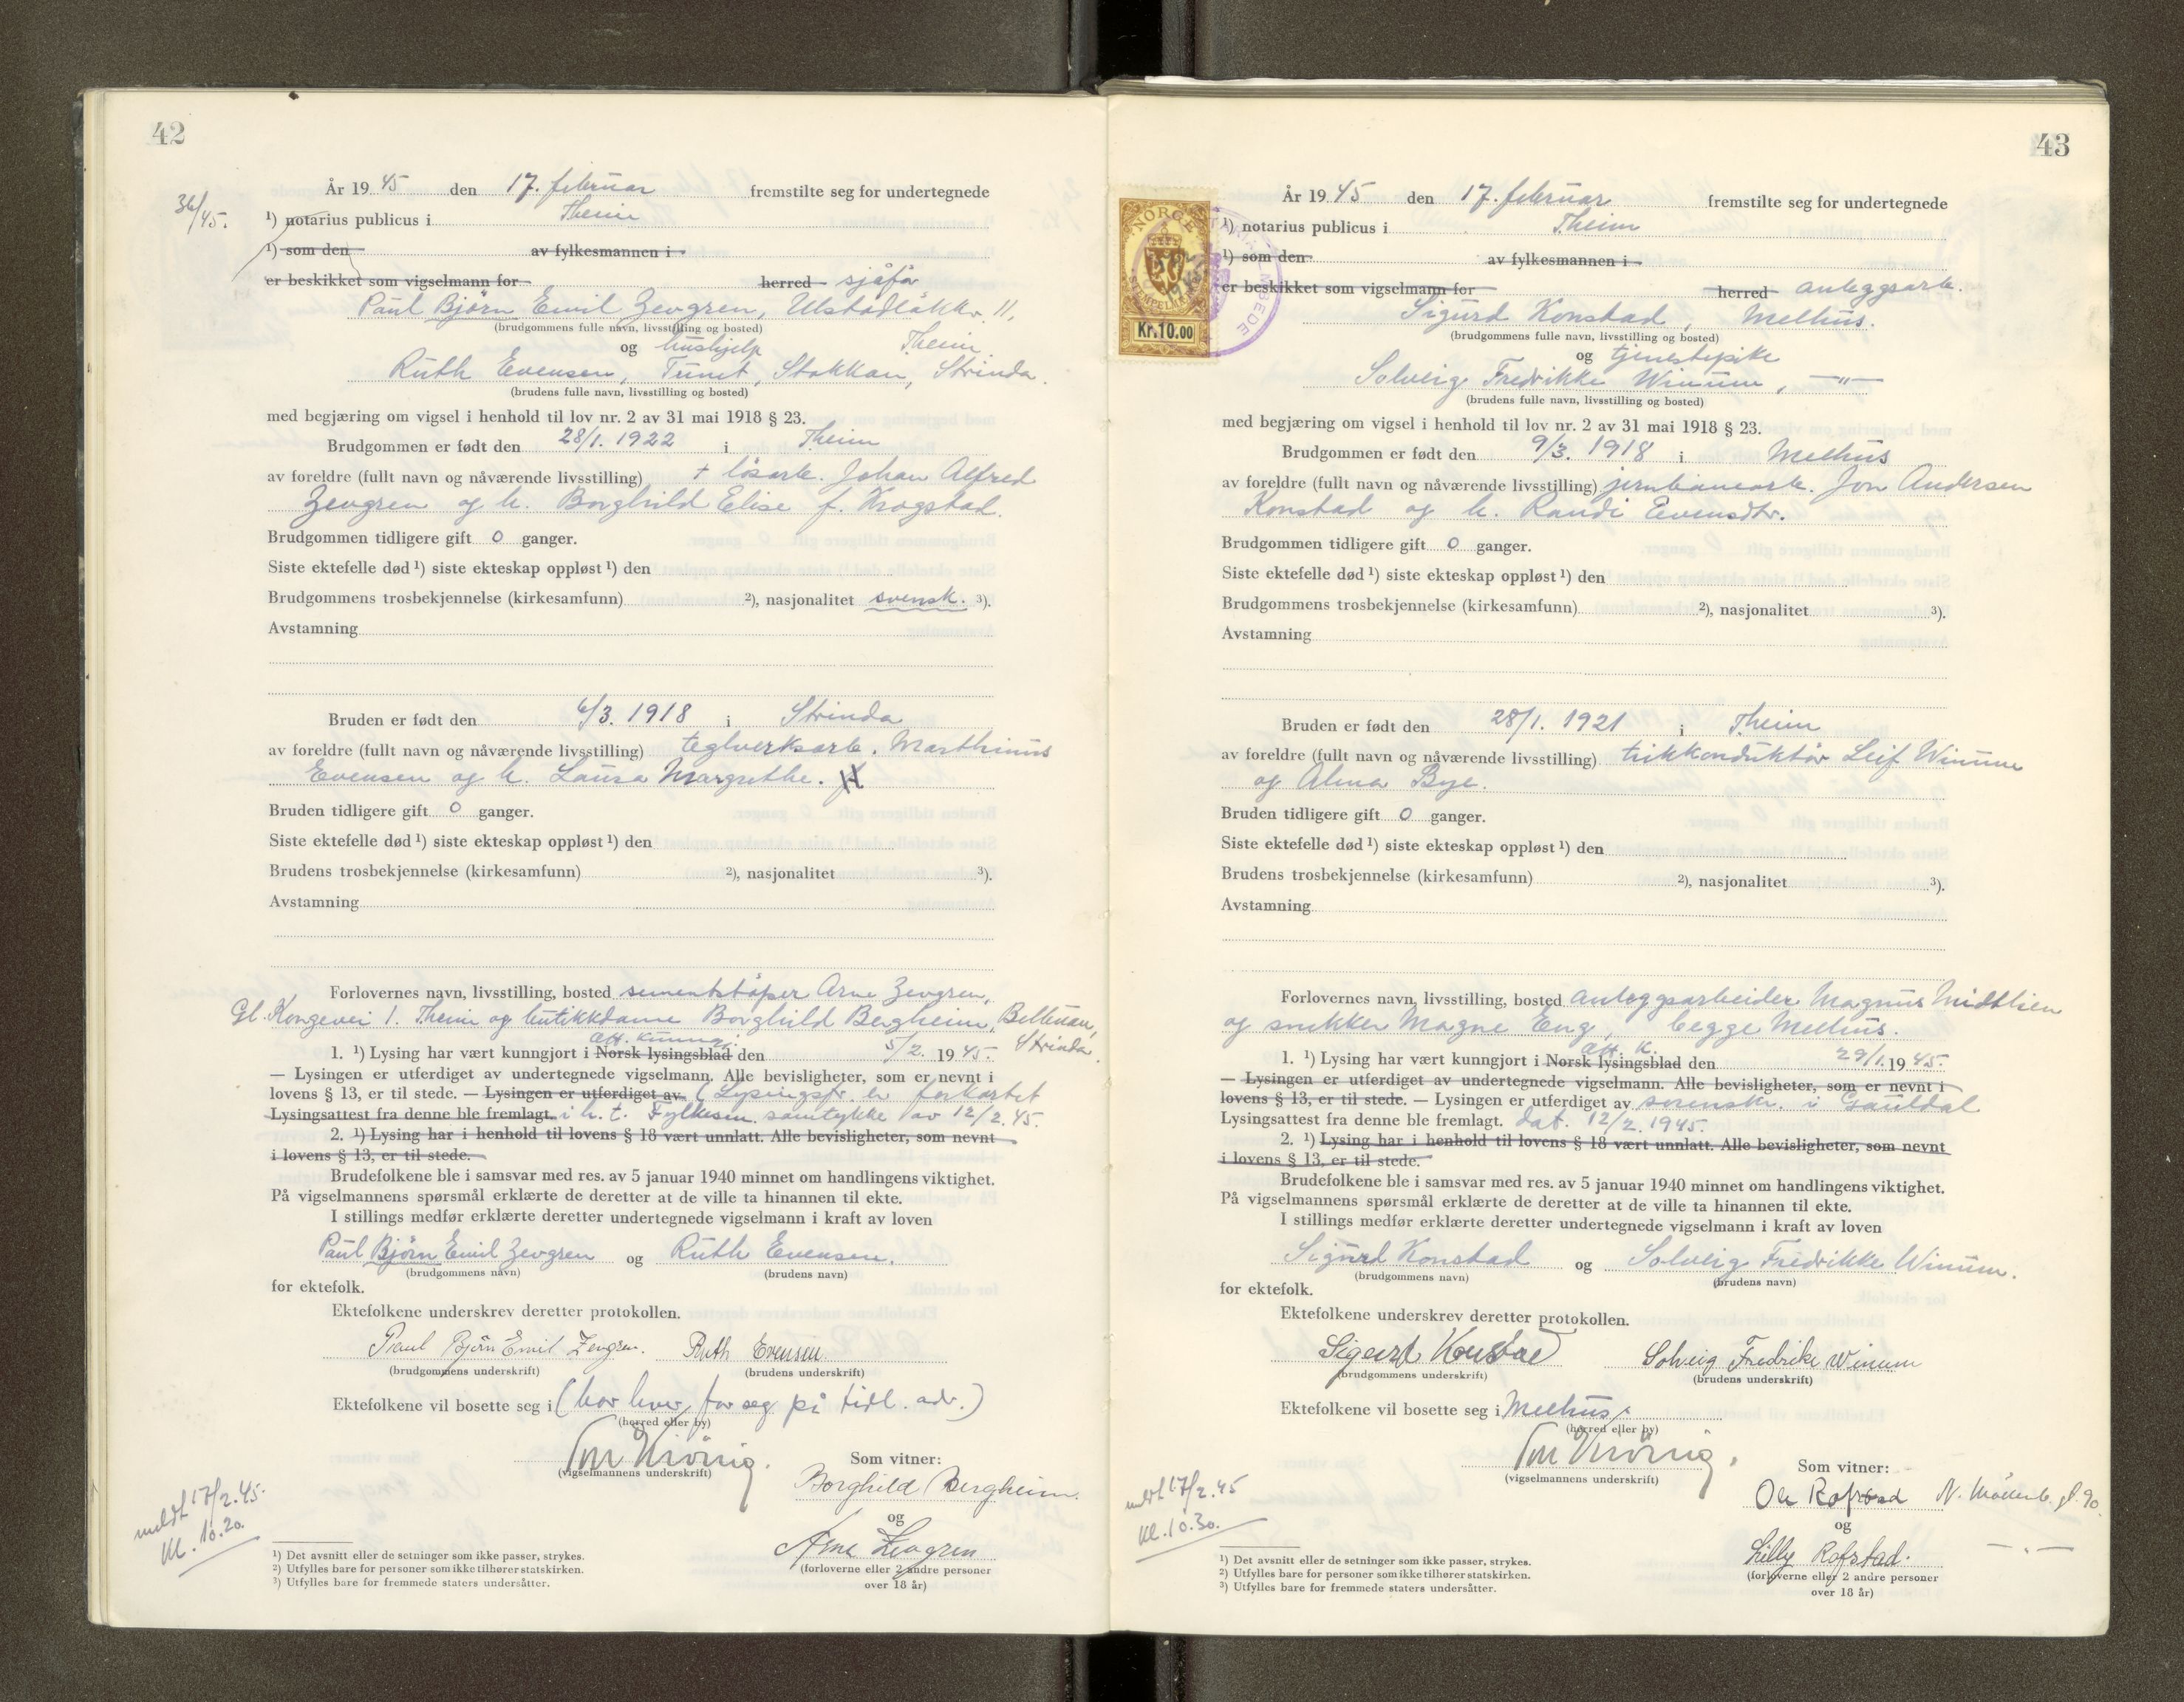 42
36/45.
År 1945 den 17. februar fremstilte seg for undertegnede
¹) notarius publicus i Theim
¹) som den av fylkesmannen i
er beskikket som vigselmann for herred sjåfør
Paul Bjørn Emil Zevgren, Ulstadløkkv. 11,
(brudgommens fulle navn, livsstilling og bosted)
og hushjelp Theim
Ruth Evensen, Tunet, Stokkan, Strinda.
(brudens fulle navn, livsstilling og bosted)
med begjæring om vigsel i henhold til lov nr. 2 av 31 mai 1918 § 23.
Brudgommen er født den 28/1. 1922 i Theim
av foreldre (fullt navn og nåværende livsstilling) + løsarb. Johan Alfred
Zevgren og h. Borghild Elise f. Krogstad.
Brudgommen tidligere gift 0 ganger.
Siste ektefelle død ¹) siste ekteskap oppløst ¹) den
Brudgommens trosbekjennelse (kirkesamfunn) ²), nasjonalitet svensk. ³).
Avstamning
Bruden er født den 6/3. 1918 i Strinda
av foreldre (fullt navn og nåværende livsstilling) teglverksarb. Marthinus
Evensen og h. Laura Margrethe.
Bruden tidligere gift 0 ganger.
Siste ektefelle død ¹) siste ekteskap oppløst ¹) den
Brudens trosbekjennelse (kirkesamfunn) ²), nasjonalitet ³).
Avstamning
Forlovernes navn, livsstilling, bosted sementstøper Arne Zevgren,
Gl. Kongevei 1. Theim og butikkdame Borghild Bergheim, Belbuan,
Strinda.
off. kunng.
1. ¹) Lysing har vært kunngjort i Norsk lysingsblad den 5/2. 1945.
— Lysingen er utferdiget av undertegnede vigselmann. Alle bevisligheter, som er nevnt i
lovens § 13, er til stede. — Lysingen er utferdiget av (Lysingsfr. er forkortet
Lysingsattest fra denne ble fremlagt. i h. t. Fylkesm. samtykke av 12/2. 45.
2. ¹) Lysing har i henhold til lovens § 18 vært unnlatt. Alle bevisligheter, som nevnt
i lovens § 13, er til stede.
Brudefolkene ble i samsvar med res. av 5 januar 1940 minnet om handlingens viktighet.
På vigselmannens spørsmål erklærte de deretter at de ville ta hinannen til ekte.
I stillings medfør erklærte deretter undertegnede vigselmann i kraft av loven
Paul Bjørn Emil Zevgren og Ruth Evensen.
(brudgommens navn) (brudens navn)
for ektefolk.
Ektefolkene underskrev deretter protokollen.
Paul Bjørn Emil Zevgren. Ruth Evensen
(brudgommens underskrift) (brudens underskrift)
Ektefolkene vil bosette seg i (bor hver for seg på tidl. adr.)
(herred eller by)
(vigselmannens underskrift)
Som vitner:
Borghild Bergheim.
og
Arne Zevgren
(forloverne eller 2 andre personer
over 18 år)
meldt 17/2.45.
kl. 10.20.
¹) Det avsnitt eller de setninger som ikke passer, strykes.
²) Utfylles bare for personer som ikke tilhører statskirken.
³) Utfylles bare for fremmede staters undersåtter.
43
NORGE
Kr.10.00
År 1945 den 17. februar fremstilte seg for undertegnede
¹) notarius publicus i Theim
¹) som den av fylkesmannen i
er beskikket som vigselmann for herred anleggsarb.
Sigurd Konstad, Melhus.
(brudgommens fulle navn, livsstilling og bosted)
og tjenestepike
Solveig Fredrikke Winum, —"—
(brudens fulle navn, livsstilling og bosted)
med begjæring om vigsel i henhold til lov nr. 2 av 31 mai 1918 § 23.
Brudgommen er født den 9/3. 1918 i Melhus
av foreldre (fullt navn og nåværende livsstilling) jernbanearb. Jon Andersen
Konstad og h. Randi Evensdtr.
Brudgommen tidligere gift 0 ganger.
Siste ektefelle død ¹) siste ekteskap oppløst ¹) den
Brudgommens trosbekjennelse (kirkesamfunn) ²), nasjonalitet ³).
Avstamning
Bruden er født den 28/1. 1921 i Theim
av foreldre (fullt navn og nåværende livsstilling) trikkonduktør Leif Winum
og Alma Bye.
Bruden tidligere gift 0 ganger.
Siste ektefelle død ¹) siste ekteskap oppløst ¹) den
Brudens trosbekjennelse (kirkesamfunn) ²), nasjonalitet ³).
Avstamning
Forlovernes navn, livsstilling, bosted anleggsarbeider Magnus Midtlien
og snikker Magne Eng, begge Melhus.
off. k.
1. ¹) Lysing har vært kunngjort i Norsk lysingsblad den 29/1. 1945.
— Lysingen er utferdiget av undertegnede vigselmann. Alle bevisligheter, som er nevnt i
lovens § 13, er til stede. — Lysingen er utferdiget av sorenskr. i Gauldal
Lysingsattest fra denne ble fremlagt. dat. 12/2. 1945.
2. ¹) Lysing har i henhold til lovens § 18 vært unnlatt. Alle bevisligheter, som nevnt
i lovens § 13, er til stede.
Brudefolkene ble i samsvar med res. av 5 januar 1940 minnet om handlingens viktighet.
På vigselmannens spørsmål erklærte de deretter at de ville ta hinannen til ekte.
I stillings medfør erklærte deretter undertegnede vigselmann i kraft av loven
Sigurd Konstad og Solveig Fredrikke Winum.
(brudgommens navn) (brudens navn)
for ektefolk.
Ektefolkene underskrev deretter protokollen.
Sigurd Konstad Solveig Fredrikke Winum
(brudgommens underskrift) (brudens underskrift)
Ektefolkene vil bosette seg i Melhus
(herred eller by)
(vigselmannens underskrift)
Som vitner:
Ole Rofstad N. Møllenb. 90.
og
Lilly Rofstad. — " —
(forloverne eller 2 andre personer
over 18 år)
meldt 17/2.45
kl. 10.30.
¹) Det avsnitt eller de setninger som ikke passer, strykes.
²) Utfylles bare for personer som ikke tilhører statskirken.
³) Utfylles bare for fremmede staters undersåtter.